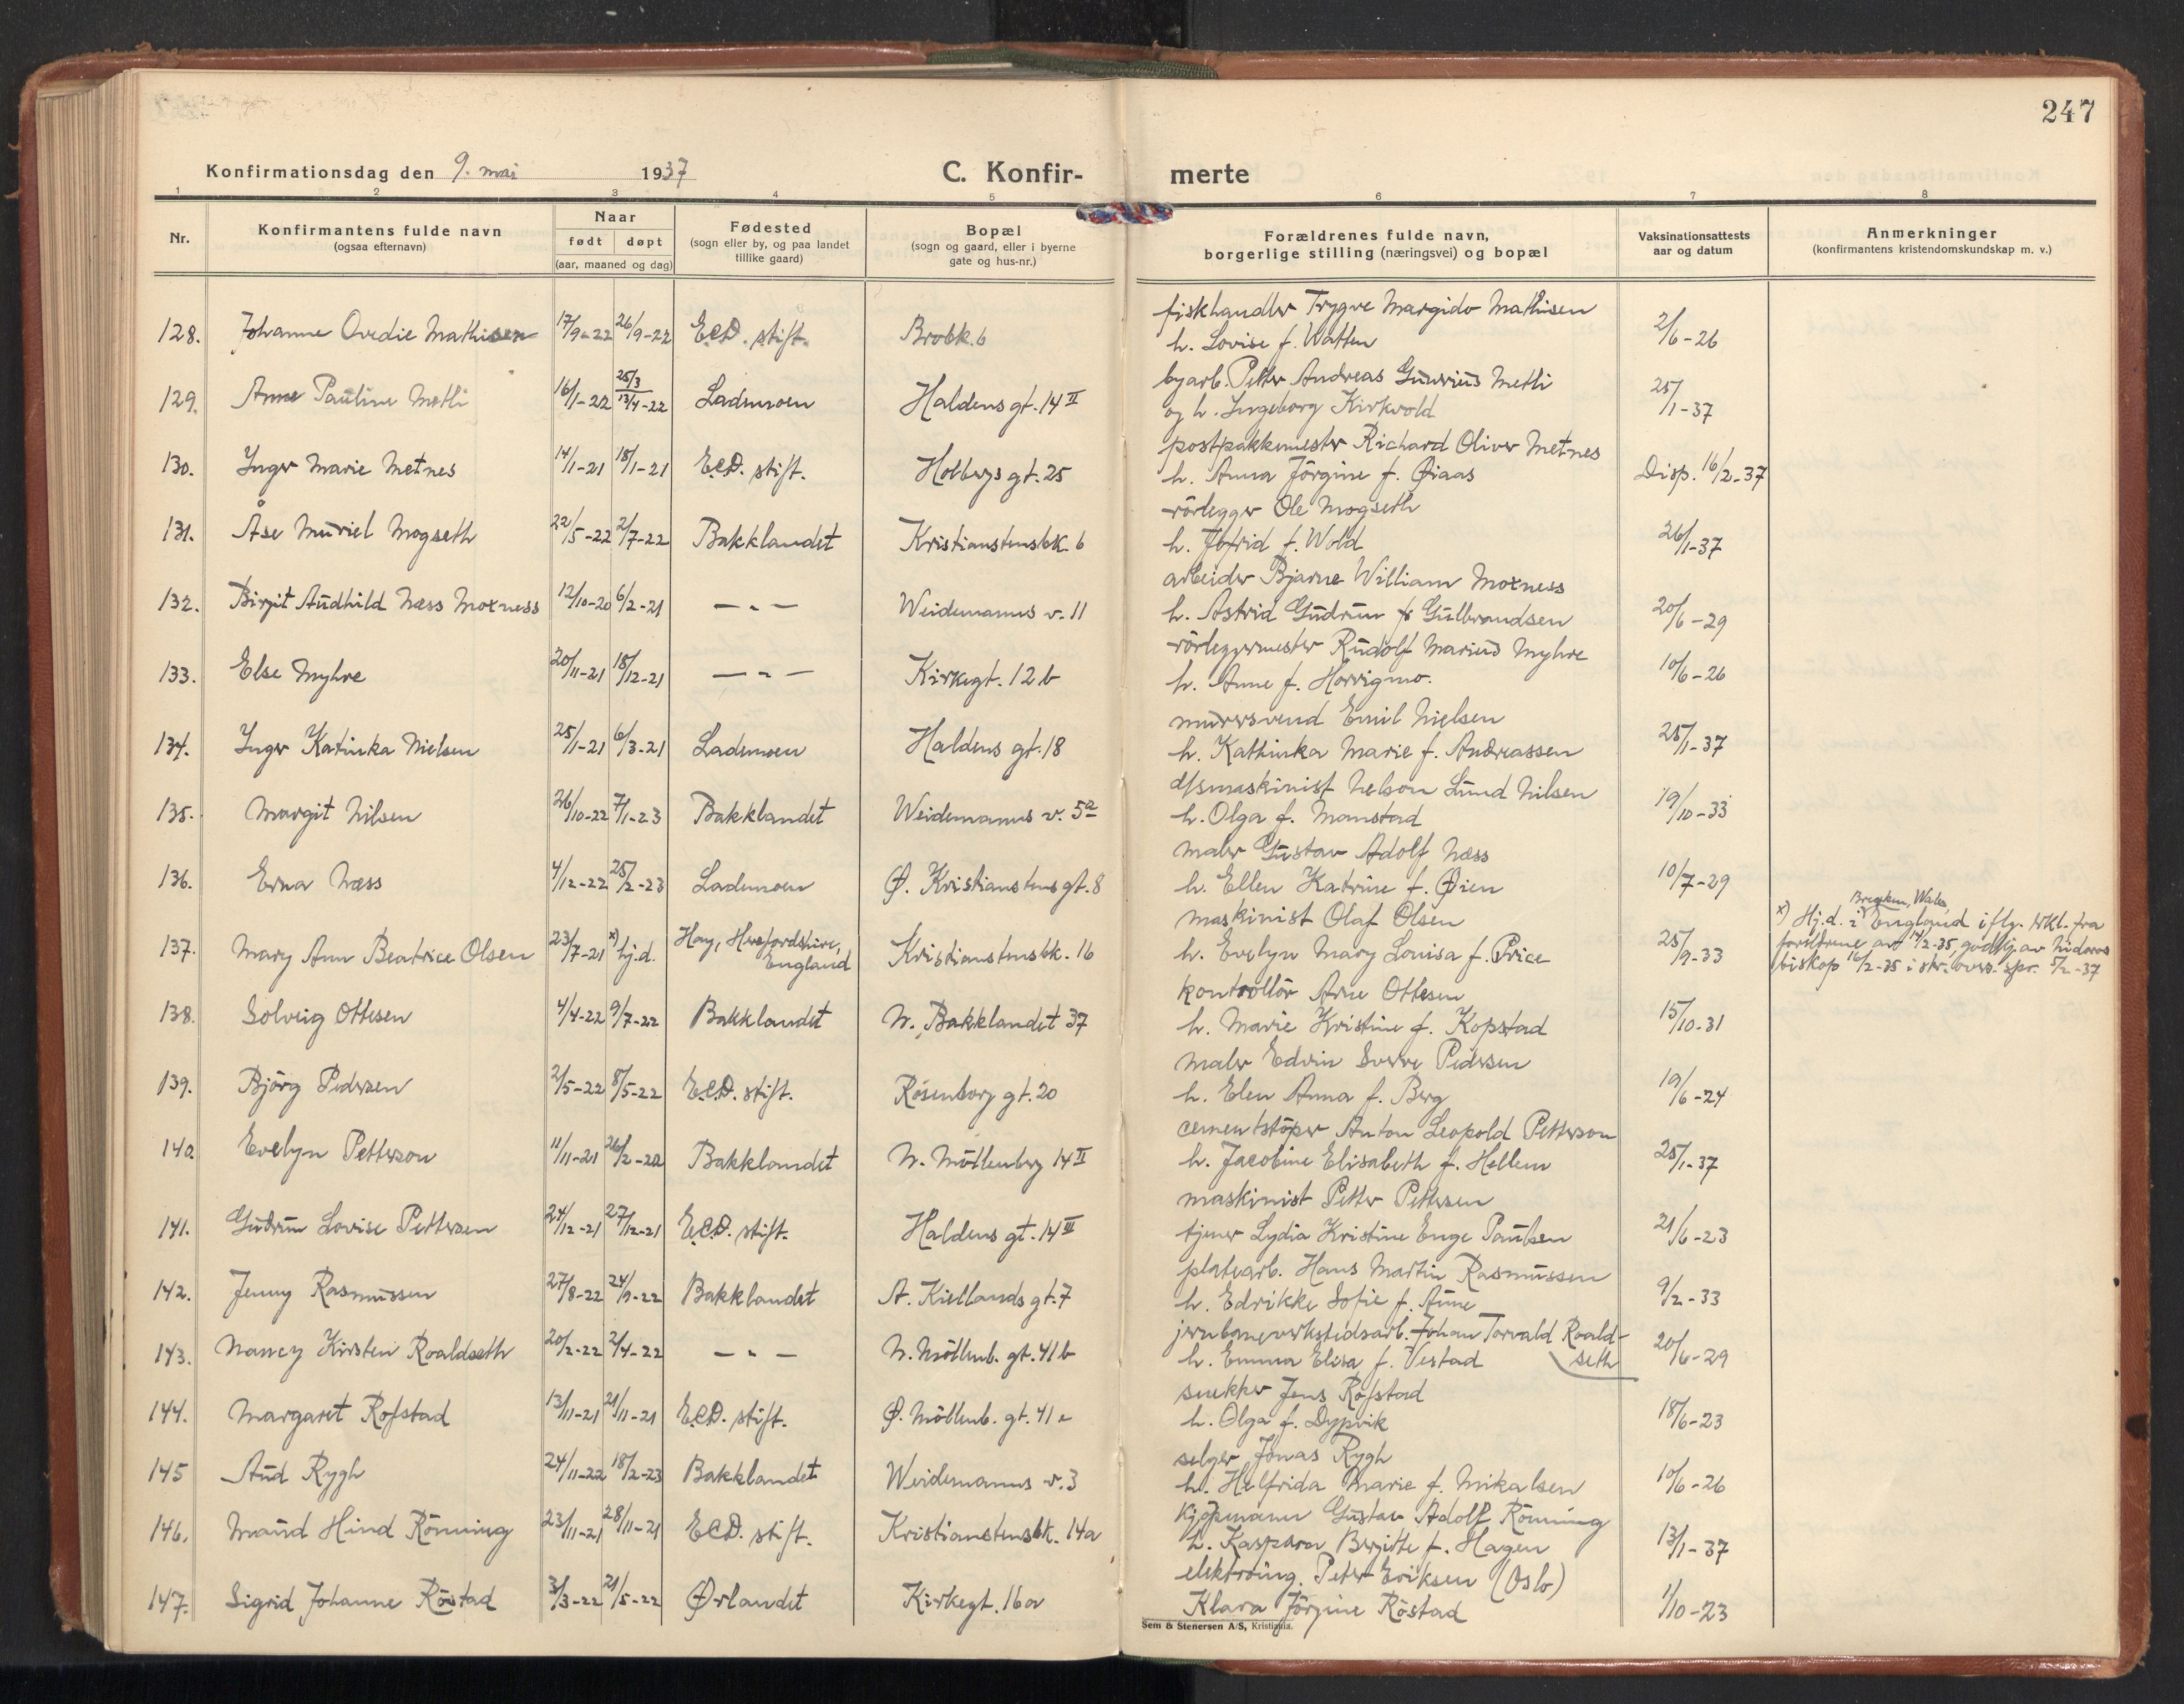 247
Konfirmationsdag den 9. mai 1937
C. Konfir-
merte
1 2 3 4 5 6 7 8
Nr.
Konfirmantens fulde navn
(ogsaa efternavn)
Naar
født døpt
(aar, maaned og dag)
Fødested
(sogn eller by, og paa landet
tillike gaard)
Bopæl
(sogn og gaard, eller i byerne
gate og hus-nr.)
Forældrenes fulde navn,
borgerlige stilling (næringsvei) og bopæl
Vaksinationsattests
aar og datum
Anmerkninger
(konfirmantens kristendomskundskap m. v.)
fiskhandler Trygve Margido Mathisen
128. Johanne Ovedie Mathisen 17/9-22 26/9-22 E.C.D. stift. Brobk. 6 h. Lovise f. Watten 2/6-26
byarb. Petter Andreas Guurius Metli
129. Anne Pauline Metli 16/1-22 25/3 13/4-22 Lademoen Haldens gt. 14 II og h. Ingeborg Kirkvold 25/1-37
postpakkmester Richard Oliver Metnes
130. Inger Marie Metnes 14/1-21 18/1-21 E.C.D. stift. Holbergs gt. 25 h. Anna Jörgine f. Øiaas Disp. 16/2-37
rörlegger Ole Mogseth
131. Åse Muriel Mogseth 22/5-22 2/7-22 Bakklandet Kristianstensbk. 6 h. Jofrid f. Wold 26/1-37
arbeider Bjarne William Moxness
132. Birgit Audhild Næss Moxness 12/10-20 6/2-21 — " — Weidemanns v. 11 h. Astrid Gudrun f. Gulbrandsen 20/6-29
rörleggermester Rudolf Marius Myhre
133. Else Myhre 20/11-21 18/12-21 — " — Kirkegt. 12 b h. Anne f. Horrigmo. 10/6-26
murersvend Emil Nielsen
134. Inger Katinka Nielsen 25/1-21 6/3-21 Lademoen Haldens gt. 18 h. Kathinka Marie f. Andreassen 25/1-37
d/smaskinist Nelson Lund Nilsen
135. Margit Nilsen 26/10-22 7/1-23 Bakklandet Weidemanns v. 5a h. Olga f. Monstad 19/10-33
maler Gustav Adolf Næss
136. Erna Næss 4/12-22 25/2-23 Lademoen Ø. Kristianstens gt. 8 h. Ellen Katrine f. Øien 10/7-29
maskinist Olaf Olsen
137. Mary Ann Beatrice Olsen 23/7-21 x) hj.d. Hay, Herefordshire, England Kristianstensbk. 16 h. Evelyn Mary Louisa f. Price 25/9-33
Wales,
x) Hj.d. i England iflg. erkl. fra
foreldrene av 14/2-35, godkj. av Nidaros
biskop 16/2-35 i skr. overs. spr. 5/2-37
kontrollör Arne Ottesen
138. Solveig Ottesen 4/4-22 9/7-22 Bakklandet N. Bakklandet 37 h. Marie Kristine f. Kopstad 15/10-31
maler Edvin Sverre Pedersen
139. Björg Pedersen 2/5-22 8/5-22 E.C.D. stift. Rosenborg gt. 20 h. Elen Anna f. Berg 19/6-24
cementstöper Anton Leopold Petterson
140. Evelyn Petterson 11/11-21 26/2-22 Bakklandet N. Möllenberg 14 II h. Jacobine Elisabeth f. Hellem 25/1-37
maskinist Petter Pettersen
141. Gudrun Lovise Pettersen 24/12-21 27/12-21 E.C.D. stift. Haldens gt. 14 III tjener Lydia Kristine Enge Paulsen 21/6-23
platearb. Hans Martin Rasmussen
142. Jenny Rasmussen 27/8-22 24/9-22 Bakklandet A. Kiellands gt. 7 h. Edrikke Sofie f. Aune 9/2-33
jernbaneverkstedsarb. Johan Torvald Roald-
seth
143. Nancy Kirsten Roaldseth 20/2-22 2/4-22 — " — N. Möllenb. gt. 41 b h. Emma Elisa f. Vestad 20/6-29
snekker Jens Rofstad
144. Margaret Rofstad 13/11-21 21/11-21 E.C.D. stift. Ø. Möllenb. gt. 41 c h. Olga f. Dypvik 18/6-23
selger Jonas Rygh
145 Aud Rygh 24/11-22 18/2-23 Bakklandet Weidemanns v. 3 h. Helfrida Marie f. Mikalsen 10/6-26
kjöpmann Gustav Adolf Rönning
146. Maud Hind Rönning 23/11-21 28/11-21 E.C.D. stift. Kristianstensbk. 14a h. Kaspara Bergitte f. Hagen 13/1-37
elektroing. Peter Eriksen (Oslo)
147. Sigrid Johanne Röstad 3/3-22 21/5-22 Ørlandet Kirkegt. 16a Klara Jörgine Röstad 1/10-23
Sem & Stenersen A/S, Kristiania.